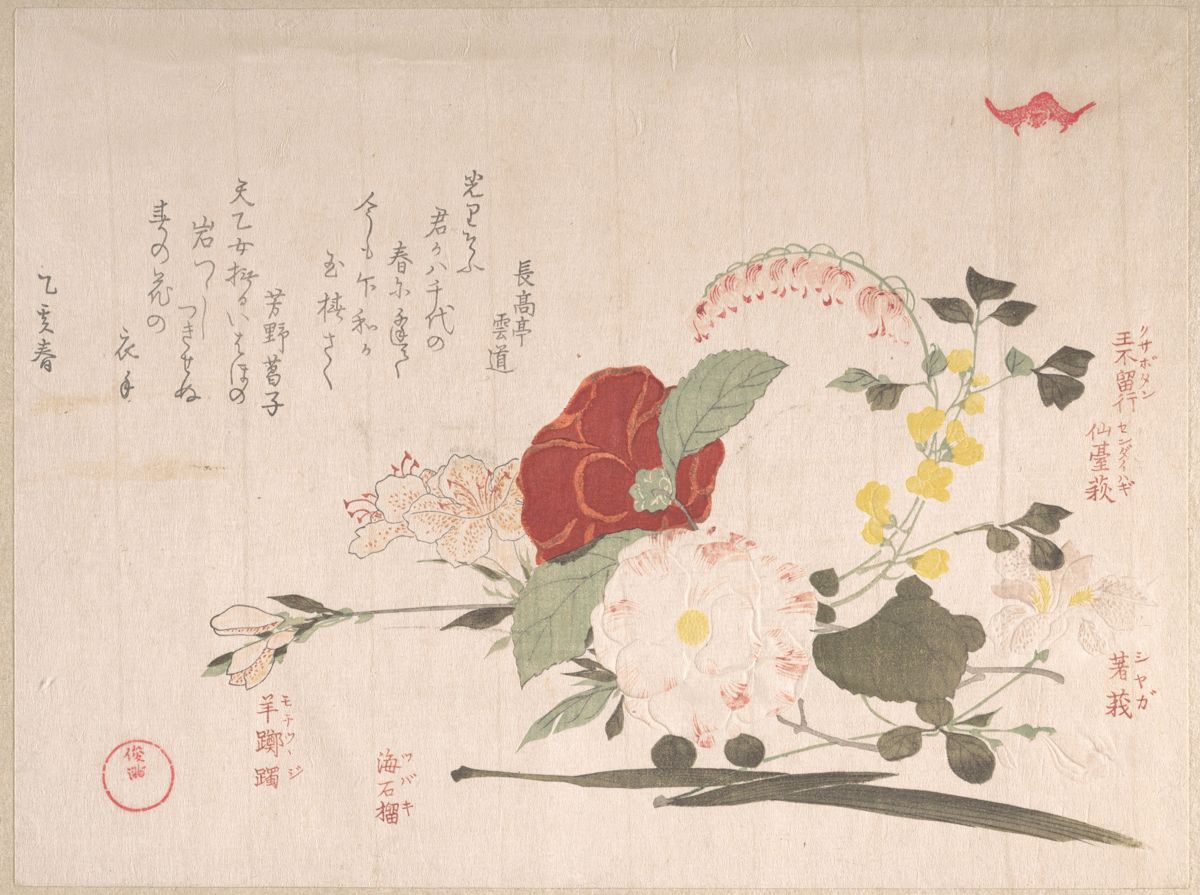 クサボタン
王不留行
センダイハギ
仙臺萩
シヤガ
著莪
長高亭
雲道
光りそふ
君か八千代の
今も卞和か
玉椿さく
芳野菖子
天乙女撫るいはほの
岩つゝし
つきせぬ
春の花の
衣手
乙亥春
ツバキ
海石榴
モチツヽジ
羊躑躅
俊満